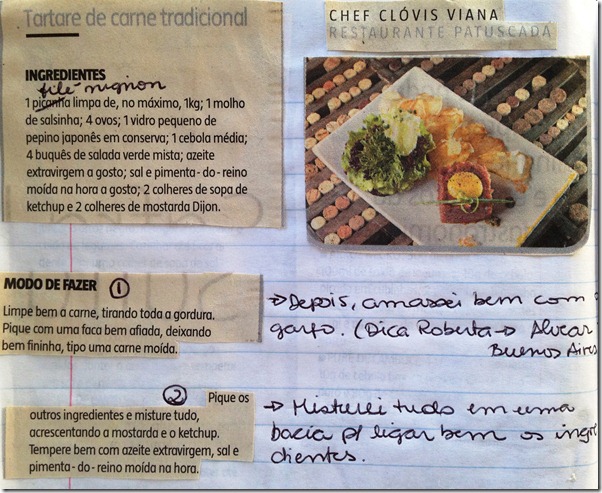 Tartare de carne tradicional
CHEF CLÓVIS VIANA
RESTAURANTE PATUSCADA
INGREDIENTES
filé-mignon
1 picanha limpa de, no máximo, 1kg; 1 molho
de salsinha; 4 ovos; 1 vidro pequeno de
pepino japonês em conserva; 1 cebola média;
4 buquês de salada verde mista; azeite
extravirgem a gosto; sal e pimenta-do-reino
moída na hora a gosto; 2 colheres de sopa de
ketchup e 2 colheres de mostarda Dijon.
MODO DE FAZER 1
Limpe bem a carne, tirando toda a gordura.
Pique com uma faca bem afiada, deixando
bem fininha, tipo uma carne moída.
→ Depois, amassei bem com o
garfo. (Dica Roberta → Alvear
Buenos Aires
2 Pique os
outros ingredientes e misture tudo,
acrescentando a mostarda e o ketchup.
Tempere bem com azeite extravirgem, sal e
pimenta-do-reino moída na hora.
→ Misturei tudo em uma
bacia p/ ligar bem os ingre
dientes.